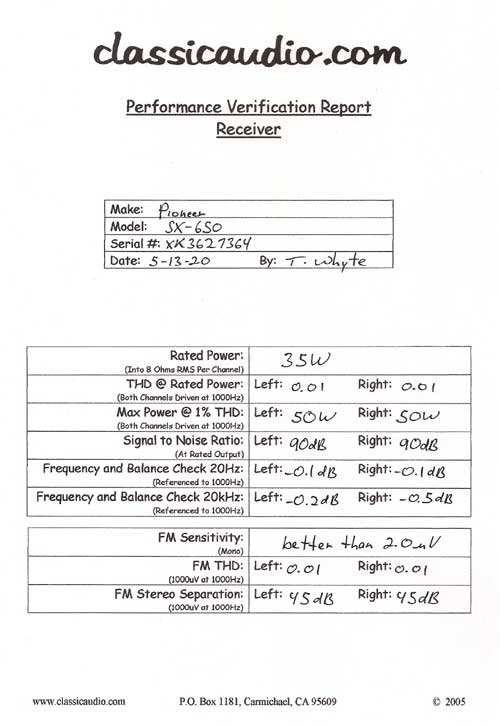 classicaudio.com
Performance Verification Report
Receiver
Make: Pioneer
Model: SX-650
Serial #: XK3627364
Date: 5-13-20 By: T. Whyte
Rated Power: 35W
(Into 8 Ohms RMS Per Channel)
THD @ Rated Power: Left: 0.01 Right: 0.01
(Both Channels Driven at 1000Hz)
Max Power @ 1% THD: Left: 50W Right: 50W
(Both Channels Driven at 1000Hz)
Signal to Noise Ratio: Left: 90dB Right: 90dB
(At Rated Output)
Frequency and Balance Check 20Hz: Left: -0.1dB Right: -0.1dB
(Referenced to 1000Hz)
Frequency and Balance Check 20kHz: Left: -0.2dB Right: -0.5dB
(Referenced to 1000Hz)
FM Sensitivity: better than 2.0uV
(Mono)
FM THD: Left: 0.01 Right: 0.01
(1000uV at 1000Hz)
FM Stereo Separation: Left: 45dB Right: 45dB
(1000uV at 1000Hz)
www.classicaudio.com P.O. Box 1181, Carmichael, CA 95609 © 2005